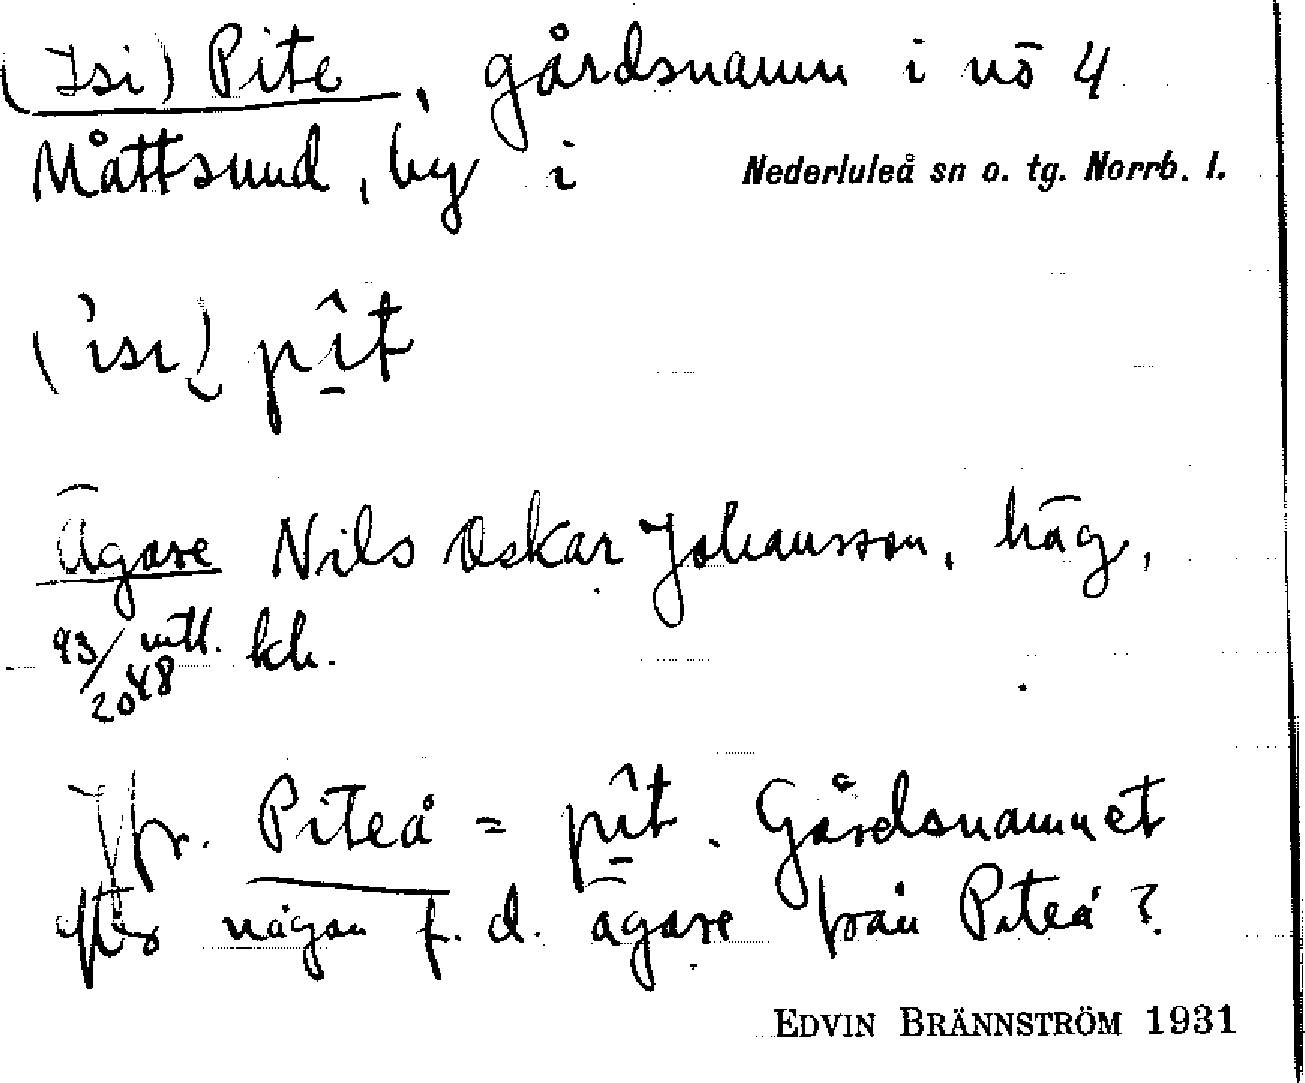 (Isi) Pite, gårdsnamn i nö 4
Måttsund, by i Nederluleå sn o. tg. Norrb. l.
(ìsı) pît
Ägare Nils Oskar Johansson, häg,
93/2048 mtl. kh.
Jfr. Piteå = pît. Gårdsnamnet
efter någon f. d. ägare från Piteå?
EDVIN BRÄNNSTRÖM 1931